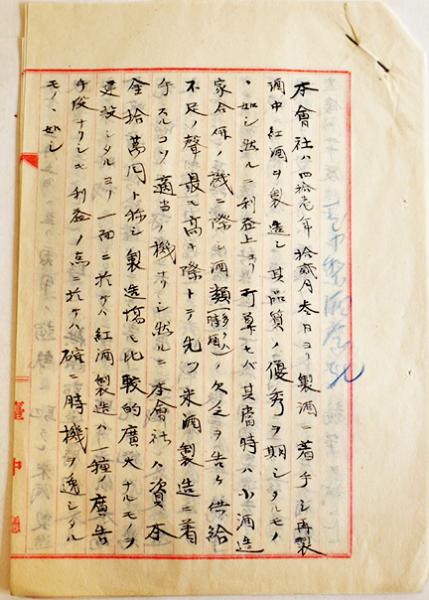 本會社ハ四拾壱年拾貳月叁日ヨリ製酒ニ着手シ再製
酒中紅酒ヲ製造シ其品質ノ優秀ヲ期シタルモノ
ヽ如シ然ルニ利益上ヨリ打算セバ其當時ハ小酒造
家合併ノ議ニ際シ酒類ノ欠乏ヲ告ケ供給
不足ノ聲最モ高キ際トテ先ツ米酒製造ニ着
手スルコソ適当ノ機ナリシ然ルニ本會社ハ資本
金拾萬円ト称シ製造場モ比較的廣大ナルモノヲ
建設シタルヨリ一面ニ於ケル紅酒製造ハ一種ノ廣告
手段ナリシモ利益ノ点ニ於テハ確ニ時機ヲ逸シタル
モノヽ如シ
臺中